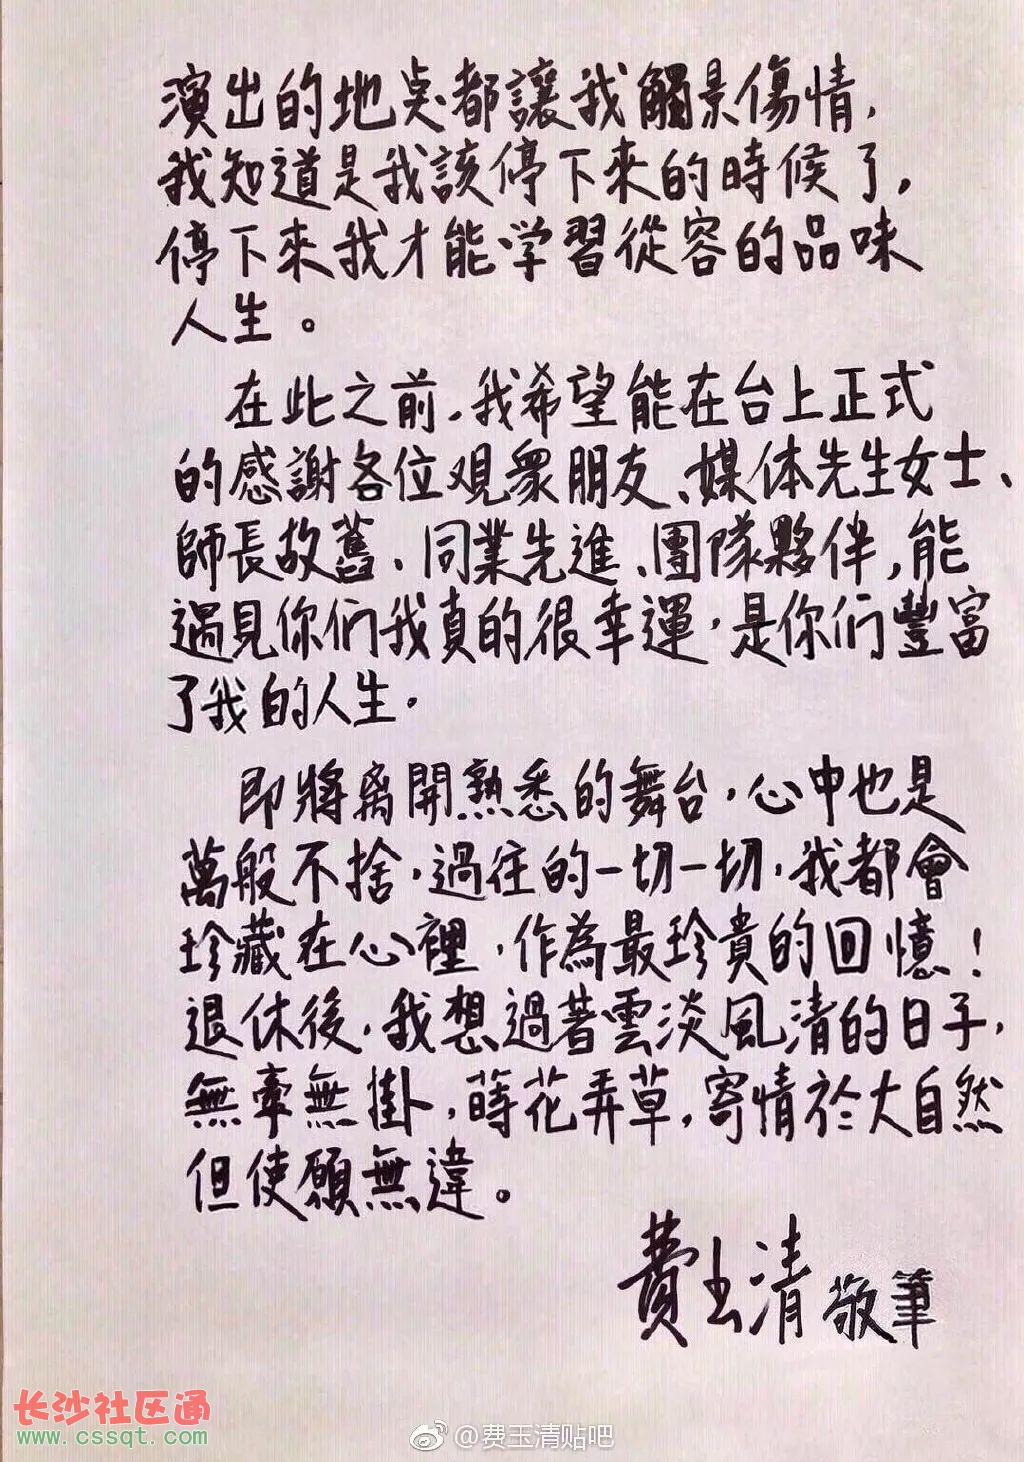 演出的地点都讓我觸景傷情,
我知道是我該停下來的時候了,
停下來我才能学習從容的品味
人生。
在此之前,我希望能在台上正式
的感謝各位观衆朋友、媒体先生女士、
師長故舊、同業先進、團隊夥伴,能
遇見你們我真的很幸運,是你們豐富
了我的人生.
即將离開熟悉的舞台,心中也是
萬般不捨,過往的一切一切,我都會
珍藏在心裡,作為最珍貴的回憶!
退休後,我想過著雲淡風清的日子,
無牽無掛,蒔花弄草,寄情於大自然
但使願無違。
費玉清敬筆
长沙社区通
www.cssqt.com
@费玉清贴吧